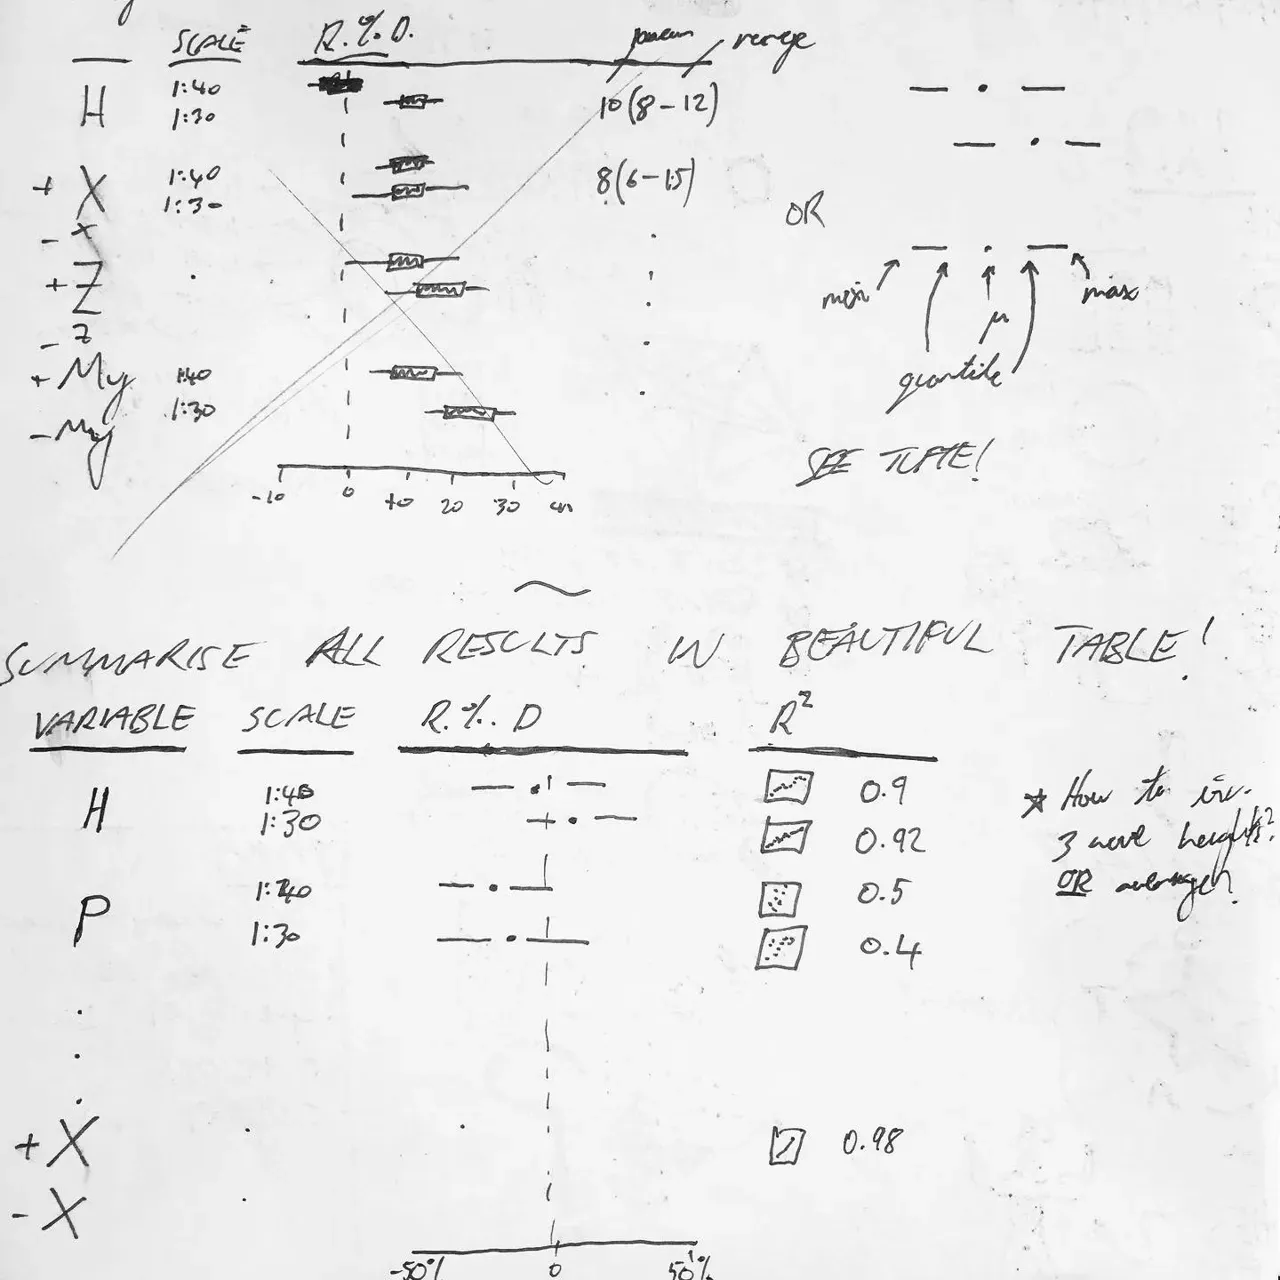 SCALE R.%.D. mean / range
H 1:40
1:30 10 (8-12)
+ X 1:40 8 (6-15)
1:30
- X
OR
+ Z
- Z
min max
μ
quartile
+ My 1:40
1:30
- My
SEE TUFTE!
-10 0 +10 20 30
SUMMARISE ALL RESULTS IN BEAUTIFUL TABLE!
VARIABLE SCALE R.%.D R²
H 1:40 0.9
1:30 0.92
* How to inc.
3 wave heights?
OR average?
P 1:40 0.5
1:30 0.4
+ X 0.98
- X
-50% 0 50%